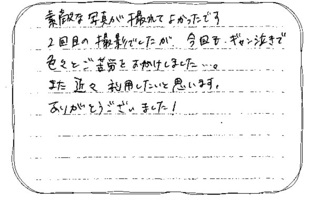 素敵な写真が撮れてよかったです
2回目の撮影でしたが、今回もギャン泣きで
色々とご苦労をおかけしました…。
また近々利用したいと思います。
ありがとうございました！